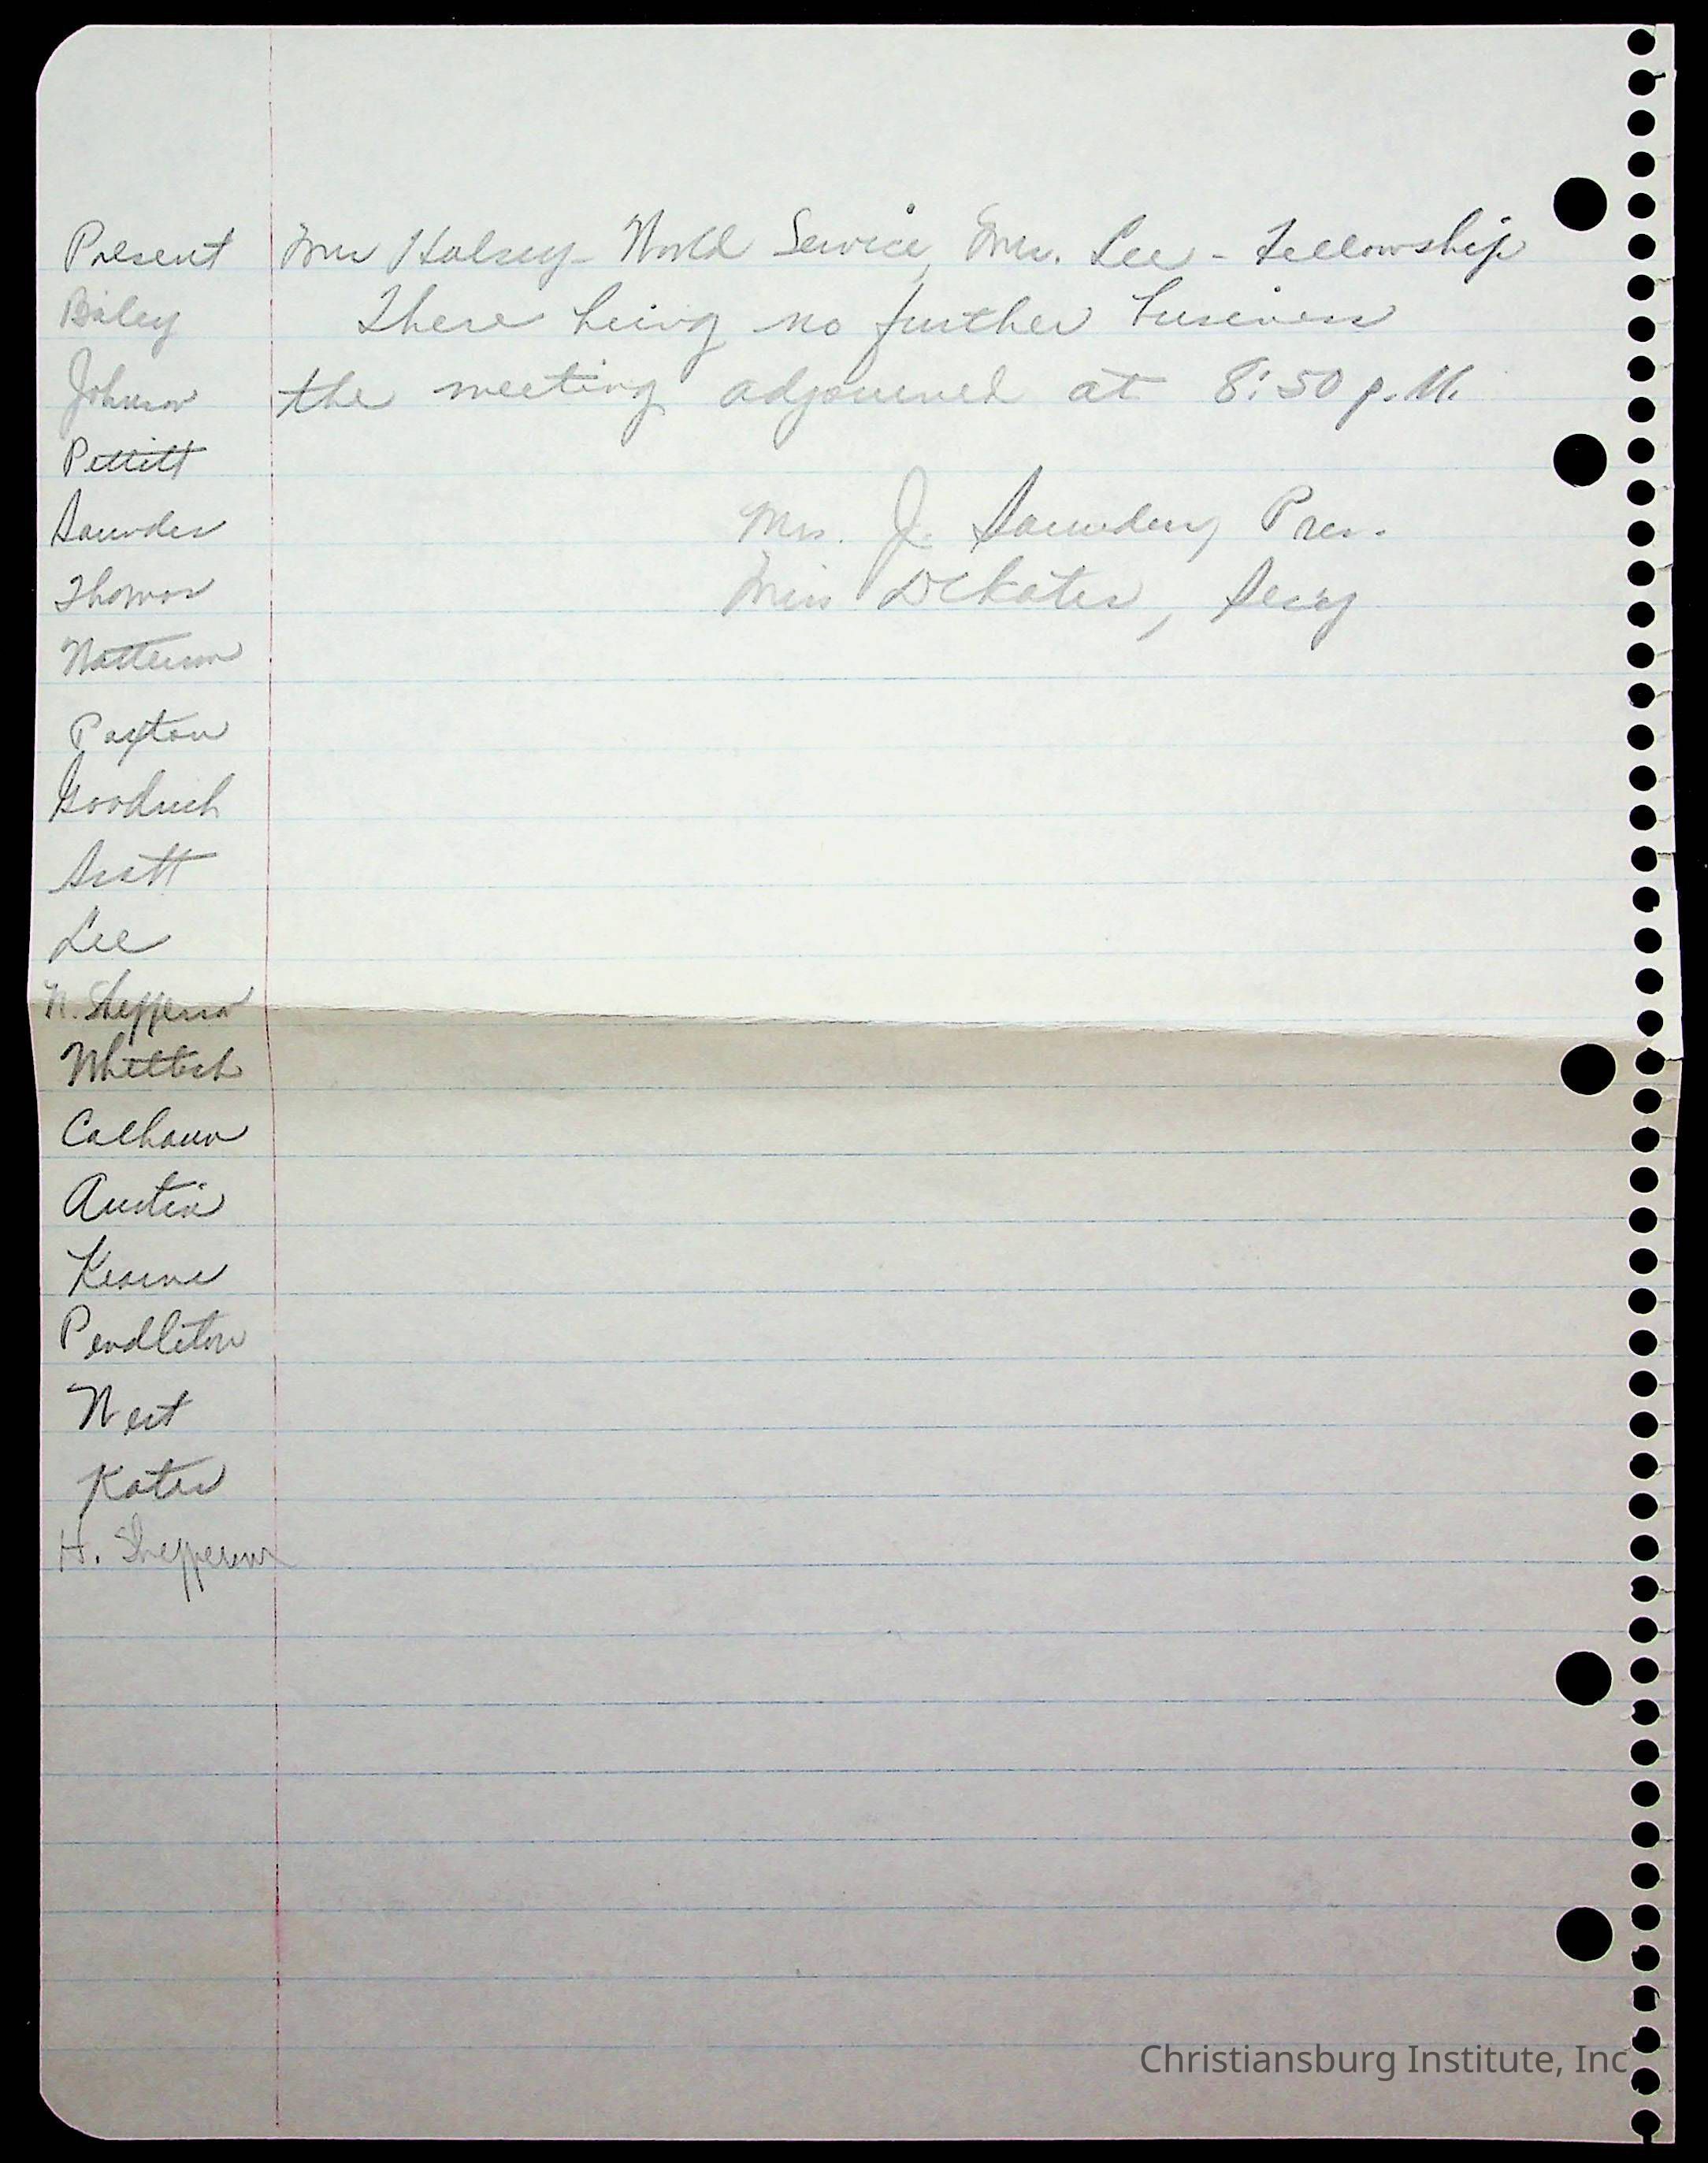 Present
Mrs Halsey - World Service, Mrs. Lee - Fellowship
There being no further business
the meeting adjourned at 8:50 p.M.
Mrs. J. Saunders, Pres.
Miss D Kater, Secy
Baley
Johnson
Pettitt
Saunders
Thomas
Paxton
Goodrich
Scott
Lee
N. Shepperd
Calhoun
Austin
Kearne
Pendleton
West
Kater
H.
Christiansburg Institute, Inc